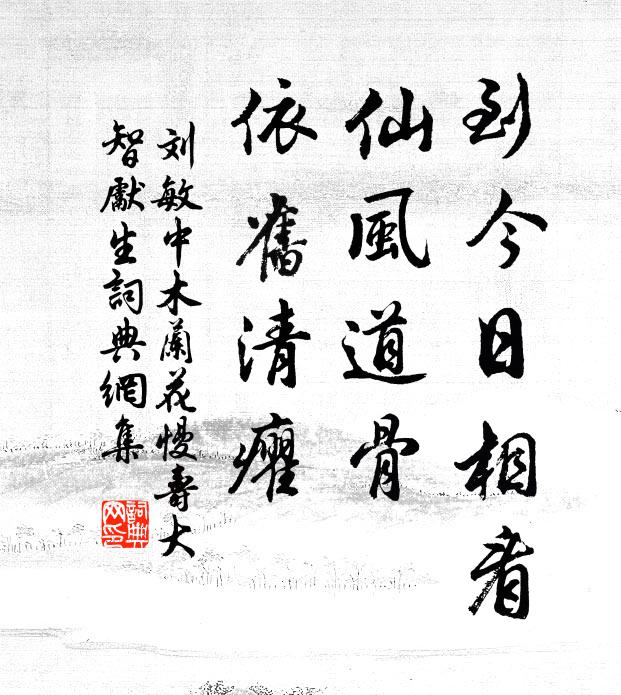 到今日相看
仙風道骨
依舊清癯
刘敏中木蘭花慢壽大
智獻生詞典網集
詞典網印